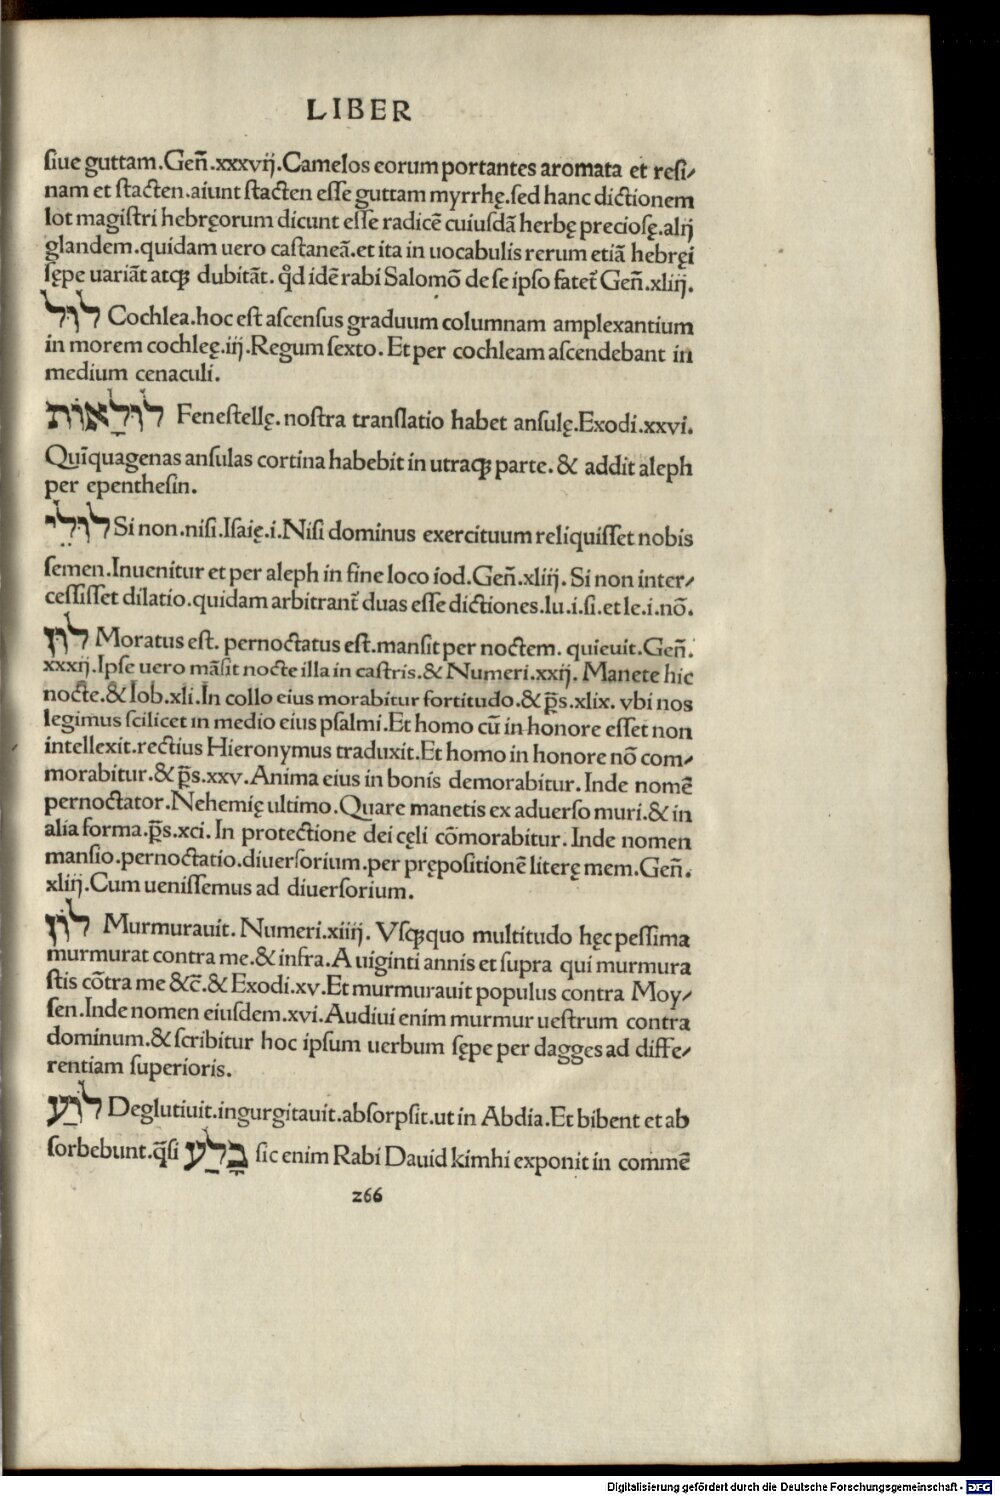 LIBER
ſiue guttam.Geñ.xxxvij.Camelos eorum portantes aromata et reſi⸗
nam et ſtacten.aiunt ſtacten eſſe guttam myrrhę.ſed hanc dictionem
lot magiſtri hebręorum dicunt eſſe radicē cuiuſdā herbę precioſę.alij
glandem.quidam uero caſtaneā.et ita in uocabulis rerum etiā hebręi
ſępe uariāt atqꝫ dubitāt. qd̉ idē rabi Salomō de ſe ipſo fatet̃ Geñ.xliij.
לוּל Cochlea.hoc eſt aſcenſus graduum columnam amplexantium
in morem cochleę.iij.Regum ſexto. Et per cochleam aſcendebant in
medium cenaculi.
לוּלָאוֹת Feneſtellę. noſtra tranſlatio habet anſulę.Exodi.xxvi.
Quīquagenas anſulas cortina habebit in utraqꝫ parte. & addit aleph
per epentheſin.
לוּלֵי Si non.niſi.Iſaię.i.Niſi dominus exercituum reliquiſſet nobis
ſemen.Inuenitur et per aleph in fine loco iod.Geñ.xliij. Si non inter⸗
ceſſiſſet dilatio.quidam arbitrant̃ duas eſſe dictiones.lu.i.ſi.et le.i.nō.
לוּן Moratus eſt. pernoctatus eſt.manſit per noctem. quieuit.Geñ.
xxxij.Ipſe uero māſit nocte illa in caſtris.& Numeri.xxij. Manete hic
nocte.& Iob.xli.In collo eius morabitur fortitudo.& p̄s.xlix. vbi nos
legimus ſcilicet in medio eius pſalmi.Et homo cū in honore eſſet non
intellexit.rectius Hieronymus traduxit.Et homo in honore nō com⸗
morabitur.& p̄s.xxv.Anima eius in bonis demorabitur. Inde nomē
pernoctator.Nehemię ultimo.Quare manetis ex aduerſo muri.& in
alia forma.p̄s.xci. In protectione dei cęli cōmorabitur. Inde nomen
manſio.pernoctatio.diuerſorium.per prępoſitionē literę mem.Geñ.
xliij.Cum ueniſſemus ad diuerſorium.
לוֹן Murmurauit. Numeri.xiiij. Vſqꝫquo multitudo hęc peſſima
murmurat contra me.& infra.A uiginti annis et ſupra qui murmura
ſtis cōtra me &c̄.& Exodi.xv.Et murmurauit populus contra Moy⸗
ſen.Inde nomen eiuſdem.xvi.Audiui enim murmur ueſtrum contra
dominum.& ſcribitur hoc ipſum uerbum ſępe per dagges ad diffe⸗
rentiam ſuperioris.
לוּעַ Deglutiuit.ingurgitauit.abſorpſit.ut in Abdia.Et bibent et ab
ſorbebunt.q̄ſi בָּלַע ſic enim Rabi Dauid kimhi exponit in commē
266
Digitalisierung gefördert durch die Deutsche Forschungsgemeinschaft - DFG